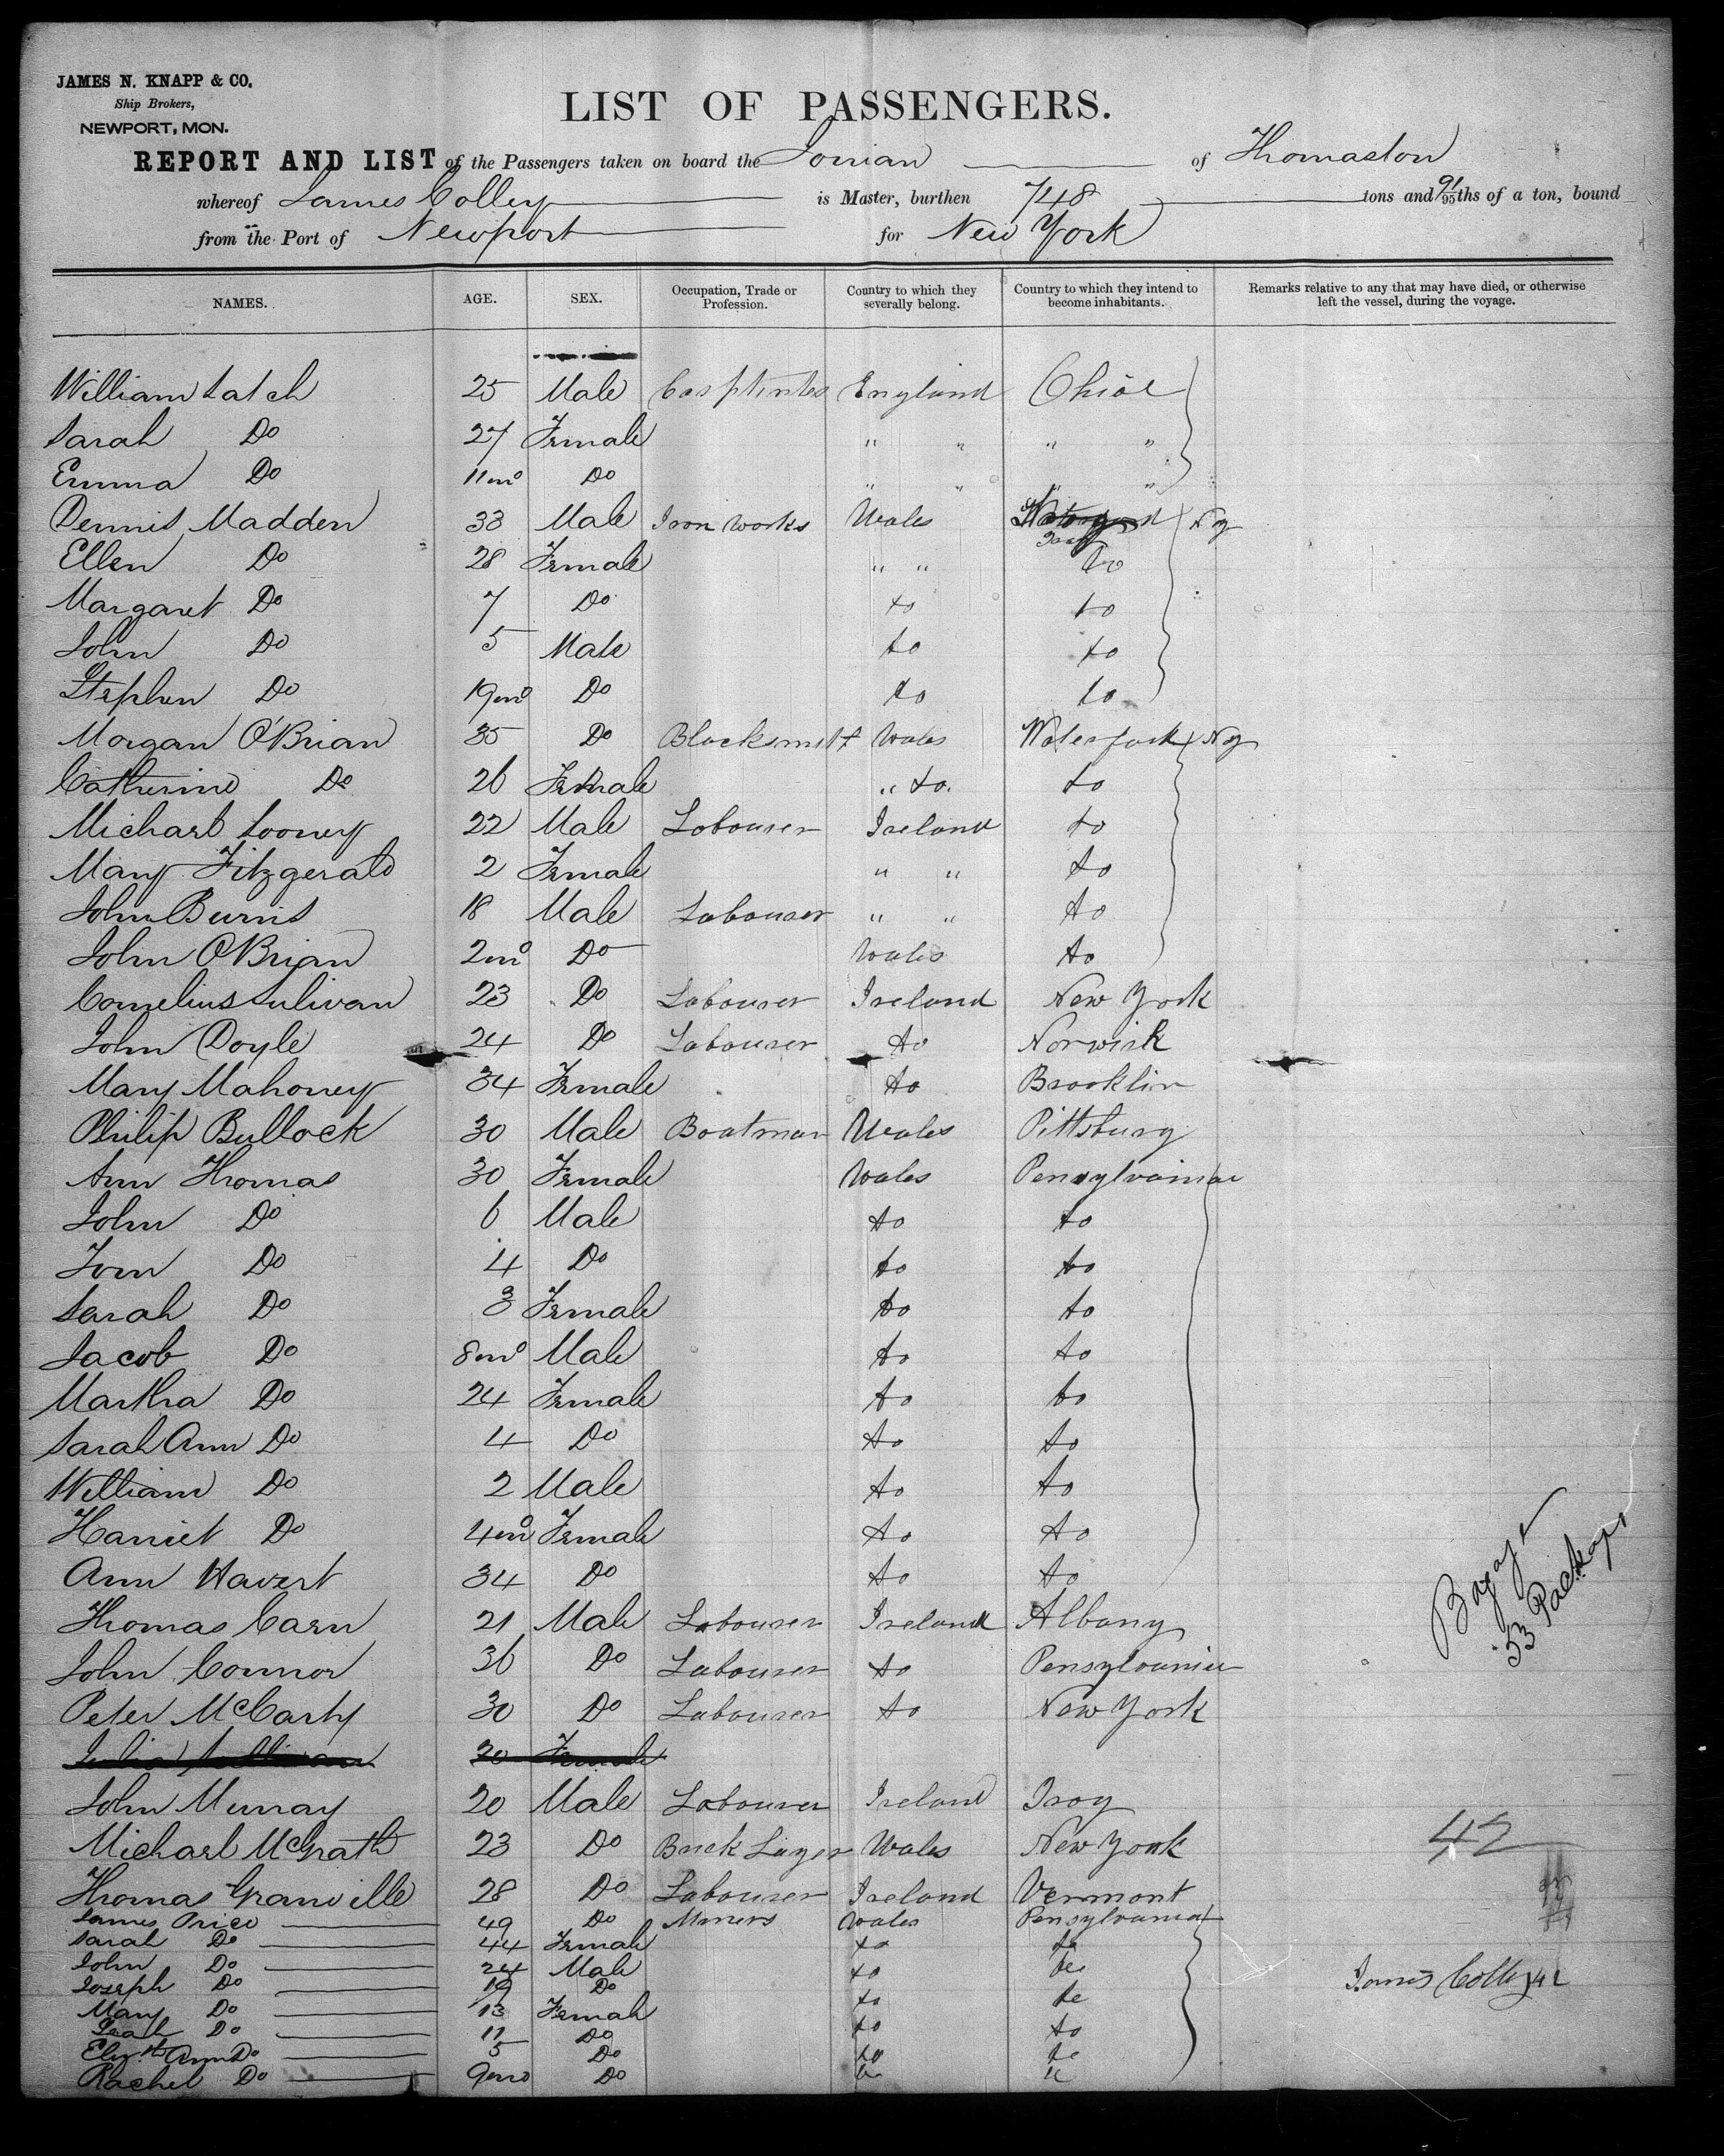 JAMES N. KNAPP & CO.
Ship Brokers,
NEWPORT, MON.
LIST OF PASSENGERS.
REPORT AND LIST of the Passengers taken on board the Ionian of Thomaston
whereof James Colley is Master, burthen 748 tons and 91/95ths of a ton, bound
from the Port of Newport for New York
NAMES. AGE. SEX. Occupation, Trade or Profession. Country to which they severally belong. Country to which they intend to become inhabitants. Remarks relative to any that may have died, or otherwise left the vessel, during the voyage.
William Latch 25 Male England Ohio
Sarah Do 27 Female " " " "
Emma Do 11mo Do " " " "
Dennis Madden 33 Male Iron Works Wales NY
Ellen Do 28 Female " " Do
Margaret Do 7 Do Do Do
John Do 5 Male Do Do
Stephen Do 19mo Do Do Do
Morgan O'Brian 35 Do Blacksmith Wales NY
Catherine Do 26 Female " Do. Do
Michael Looney 22 Male Labourer Ireland Do
Mary Fitzgerald 2 Female " " Do
John Burns 18 Male Labourer " " Do
John O'Brian 2mo Do Wales Do
Cornelius Sulivan 23 Do Labourer Ireland New York
John Doyle 24 Do Labourer Do Norwich
Mary Mahoney 34 Female Do Brooklin
Philip Bullock 30 Male Boatman Wales Pittsburg
Ann Thomas 30 Female Wales Pensylvaniae
John Do 6 Male Do Do
Tom Do 4 Do Do Do
Sarah Do 3 Female Do Do
Jacob Do 8mo Male Do Do
Martha Do 24 Female Do Do
Sarah Ann Do 4 Do Do Do
William Do 2 Male Do Do
Harriet Do 4mo Female Do Do
Ann Havert 34 Do Do Do
Thomas Carn 21 Male Labourer Ireland Albany
John Connor 36 Do Labourer Do Pensylvaniae
Peter McCarty 30 Do Labourer Do New York
Julia Sullivan 20 Female
John Murray 20 Male Labourer Ireland Troy
Michael McGrath 23 Do Brick Layer Wales New York
Thomas Granville 28 Do Labourer Ireland Vermont
James Price 49 Do Miners Wales Pensylvania
Sarah Do 44 Female Do Do
John Do 24 Male Do Do
Joseph Do 19 Do Do Do
Mary Do 13 Female Do Do
Leah Do 11 Do Do Do
Elizth Ann Do 5 Do Do Do
Rachel Do 9mo Do
Bagage
53 Packages
42
James Colley